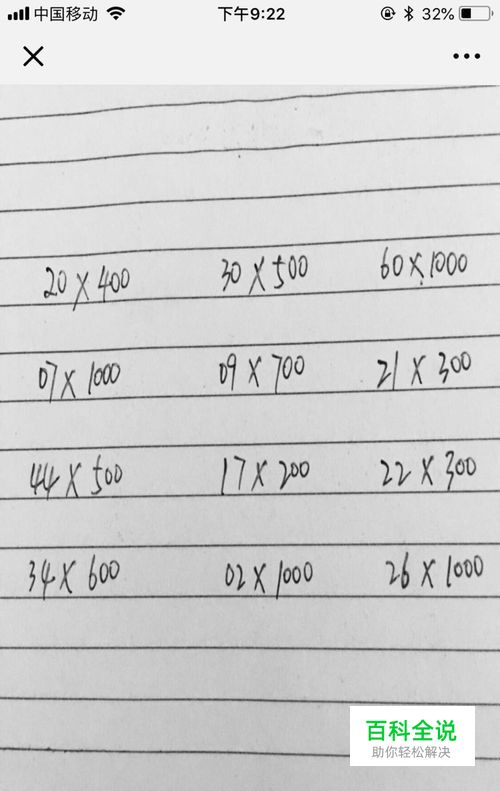 中国移动 下午9:22 32%
20×400 30×500 60×1000
07×1000 09×700 21×300
44×500 17×200 22×300
34×600 02×1000 26×1000
百科全说
助你轻松解决